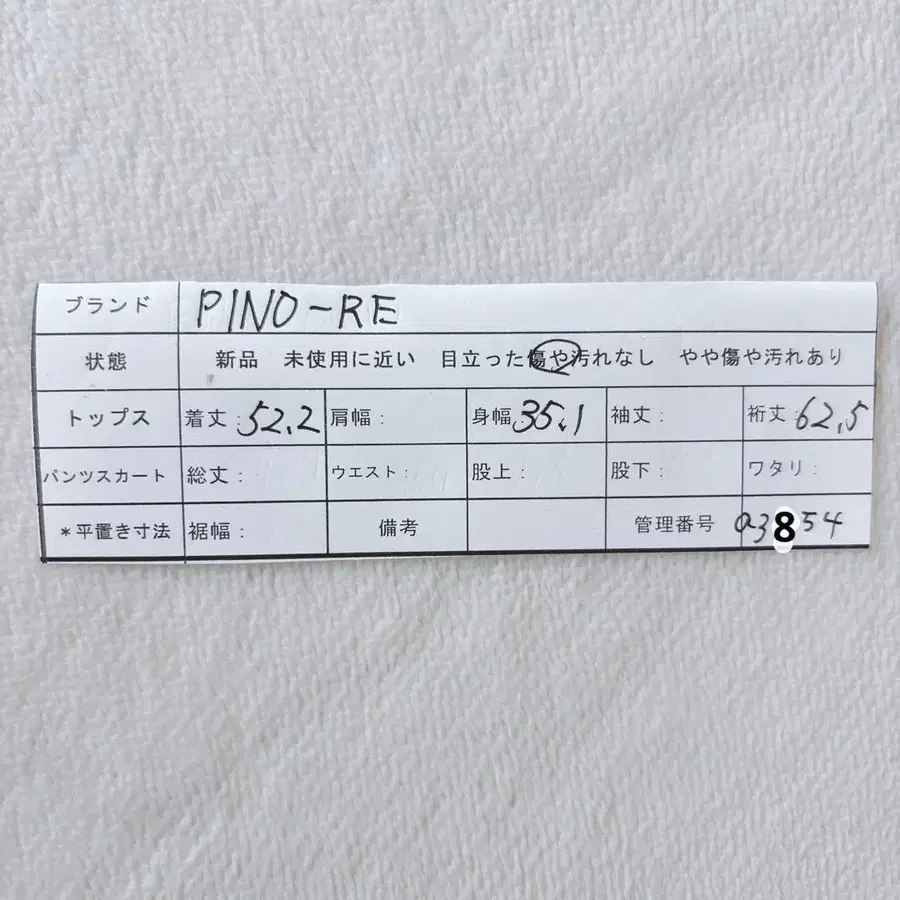 ブランド PINO-RE
状態 新品 未使用に近い 目立った傷や汚れなし やや傷や汚れあり
トップス 着丈:52.2 肩幅: 身幅:35.1 袖丈: 裄丈:62.5
パンツスカート 総丈: ウエスト: 股上: 股下: ワタリ:
*平置き寸法 裾幅: 備考 管理番号 a3854